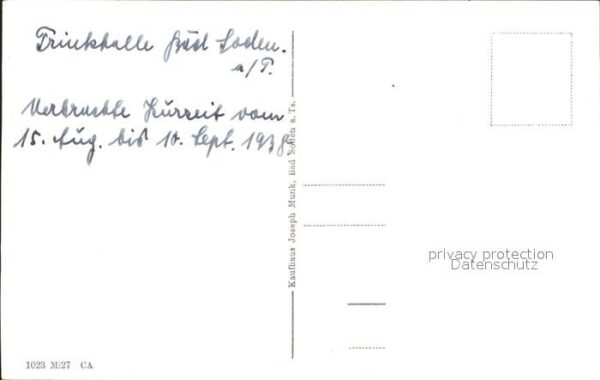 Trinkhalle Bad Soden.
a/T.
Verbrachte Kurzeit vom
15. Aug. bis 10. Sept. 1938
Kaufhaus Joseph Munk, Bad Soden a. Ts.
privacy protection
Datenschutz
1023 M/27 CA